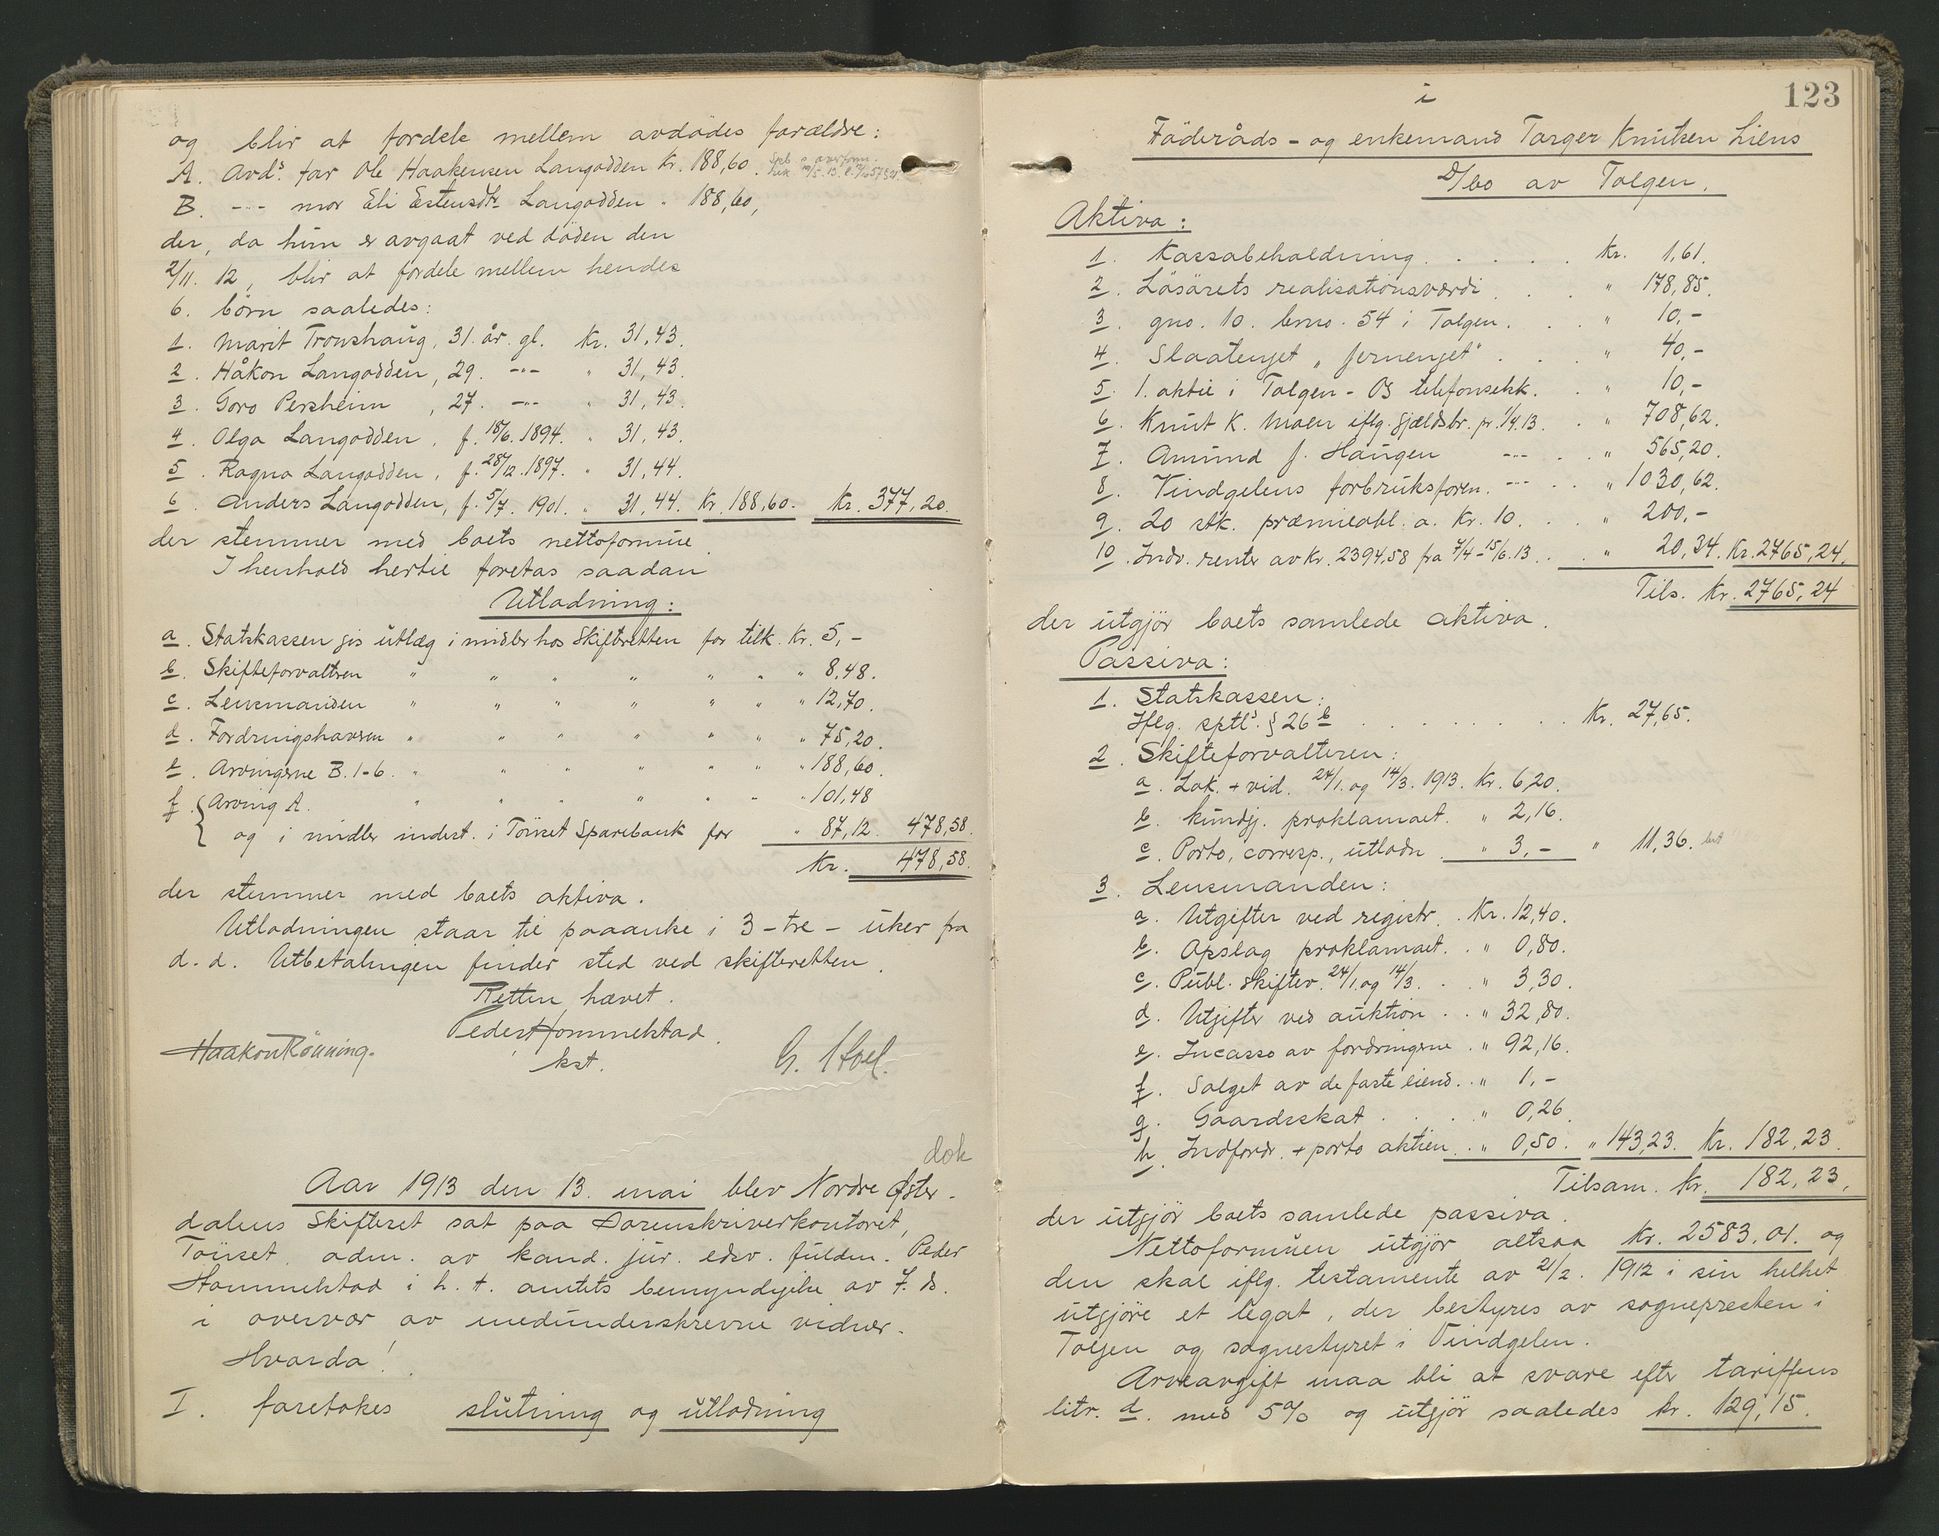 og blir at fordele mellem avdödes forældre:
A. Avd.s far Ole Haakensen Langodden Kr. 188,60.
B. -"- mor Eli Estensdtr. Langodden " 188,60,
der, da hun er avgaat ved döden den
2/11. 12, blir at fordele mellem hendes
6. börn saaledes:
1. Marit Tronshaug, 31. år. gl. Kr. 31,43.
2. Håkon Langodden, 29. -"- " 31,43.
3. Goro Persheim, 27. -"- " 31,43.
4. Olga Langodden, f. 18/6. 1894. " 31,43.
5. Ragna Langodden, f. 28/12. 1897. " 31,44.
6. Anders Langodden, f. 5/7. 1901. " 31,44. Kr. 188,60. Kr. 377,20.
der stemmer med boets nettoformue.
I henhold hertil foretas saadan
Utlodning:
a. Statskassen gis utlæg i midler hos Skifteretten for tilk. Kr. 5,-
b. Skifteforvalteren " " " " " " " 8,48.
c. Lensmanden " " " " " " " 12,70.
d. Fordringshavern " " " " " " " 75,20.
e. Arvingerne B. 1-6. " " " " " " " 188,60.
f. { Arving A. " " " " " " " 101,48
og i midler indest. i Tönset Sparebank for " 87,12. 478,58.
Kr. 478,58.
der stemmer med boets aktiva.
Utlodningen staar til paaanke i 3 - tre - uker fra
d.d. Utbetalingen finder sted ved skifteretten.
Retten hævet.
Peder Hommelstad.
kst.
Haakon Rønning. G. Hoel.
dok
Aar 1913 den 13. mai blev Nordre Øster-
dalens Skifteret sat paa Sorenskriverkontoret,
Tönset, adm. av kand. jur. edsv. fuldm. Peder
Hommelstad i h. t. amtets bemyndigelse av 7. ds.
i overvær av medunderskrevne vidner.
Hvorda!
I. foretokes slutning og utlodning
123
i
Föderåds- og enkemand Torger Knutsen Liens
D/bo av Tolgen.
Aktiva:
1. Kassabeholdning . . . . . Kr. 1,61.
2. Lösörets realisationsværdi . . . " 178,85.
3. gno. 10. brno. 54 i Tolgen. . . " 10,-
4. Slaatenget „ " . . . " 40,-
5. 1. aktie i Tolgen - Os telefonselsk. . " 10,-
6. Knut K. Moen iflg. gjældsbr. pr. 1/4.13. . " 708,62.
7. Amund J. Haugen -"- . . " 565,20.
8. Vindgelens forbruksforen. -"- . . " 1030,62.
9. 20 stk. præmieobl. a. Kr. 10. . . " 200,-
10. Indv. renter av Kr. 2394,58 fra 7/4 - 15/6. 13. . . " 20,34. Kr. 2765,24.
Tils. Kr. 2765,24
der utgjör boets samlede aktiva.
Passiva:
1. Statskassen:
Iflg. sptl.s § 26 b . . . . . . . Kr. 27,65.
2. Skifteforvalteren:
a. Lok. + vid. 24/1. og 14/3. 1913. Kr. 6,20.
b. Kundgj. proklamaet. " 2,16.
c. Porto, corresp., utlodn. " 3,- " 11,36.
3. Lensmanden:
a. Utgifter ved registr. . Kr. 12,40.
b. Opslag proklamaet. . " 0,80.
c. Publ. skifter. 24/1. og 14/3. . . " 3,30.
d. Utgifter ved auktion . . " 32,80.
e. Incasso av fordringerne . " 92,16.
f. Salget av de faste eiend. . " 1,-
g. Gaardsskat . . . . " 0,26.
h. Indfordr. + porto aktien . . " 0,50. " 143,23. Kr. 182,23.
Tilsam. Kr. 182,23.
der utgjör boets samlede passiva.
Nettoformuen utgjör altsaa Kr. 2583,01. og
den skal iflg. testamente av 21/2. 1912 i sin helhet
utgjöre et legat, der bestyres av sognepresten i
Tolgen og sognestyret i Vindgelen.
Arveavgift maa bli at svare efter tariffens
litr. d. med 5% og utgjör saaledes kr. 129,15.